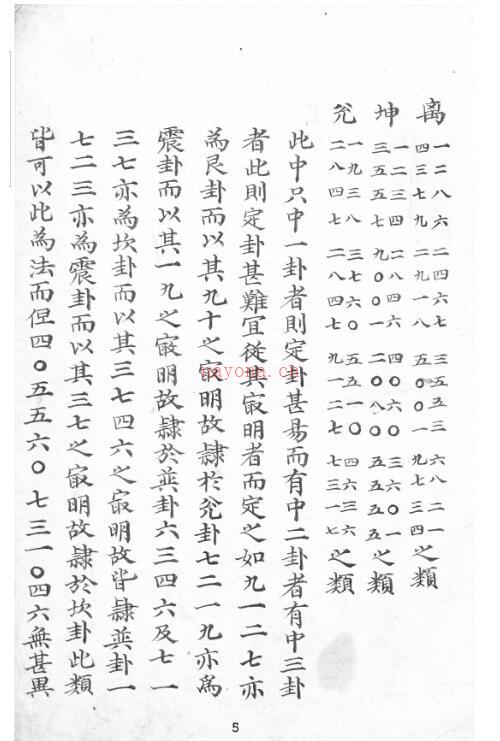 离 一二八六 二四六七 三五五三 六八二一
四三七九 二九一八 五〇〇一 九七三四 之類
坤 一二三四 二八四六 四〇六〇 三六〇一
三五五七 九〇〇一 二〇八〇 五五五五 之類
兊 一九三八 三七六〇 五五一〇 四六三六
二八四七 二八四七 九一二七 七三一七 之類
此中只中一卦者則定卦甚易而有中二卦者有中三卦
者此則定卦甚難宜從其㝡明者而定之如九一二七亦
為艮卦而以其九十之㝡明故隷於兊卦七二一九亦為
震卦而以其一九之㝡明故隷於巽卦六三四六及七一
三七亦為坎卦而以其三七四六之㝡明故皆隷巽卦一
七二三亦為震卦而以其三七之㝡明故隷於坎卦此類
皆可以此為法而但四〇五五六〇七三一〇四六無甚異
nayona.cn
5